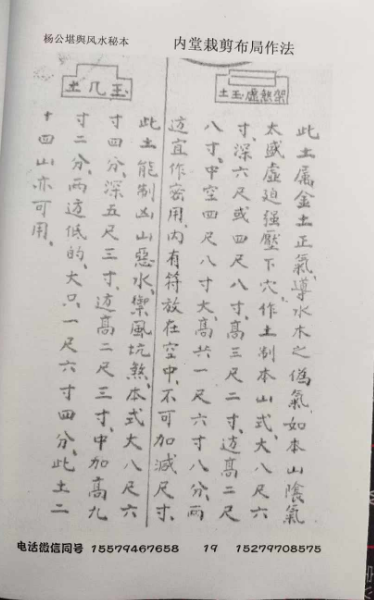 杨公堪舆风水秘本
内堂栽剪布局作法
架煞虚玉土
此土属金土正氣、導水木之偽氣、如本山陰氣
太盛虚迫强壓下穴、作土制本山式、大八尺六
寸、深六尺或四尺八寸、高三尺二寸、边高二尺
八寸、中空四尺八寸大、高共一尺六寸八分、两
边宜作密用、内有符放在空中、不可加减尺寸、
玉几土
此土能制凶山惡水、禦風坑煞、本式大八尺六
寸四分、深五尺三寸、边高二尺三寸、中加高九
寸二分、两边低的、大只一尺六寸四分、此土二
十四山亦可用、
电话微信同号 15579467658 19 15279708575